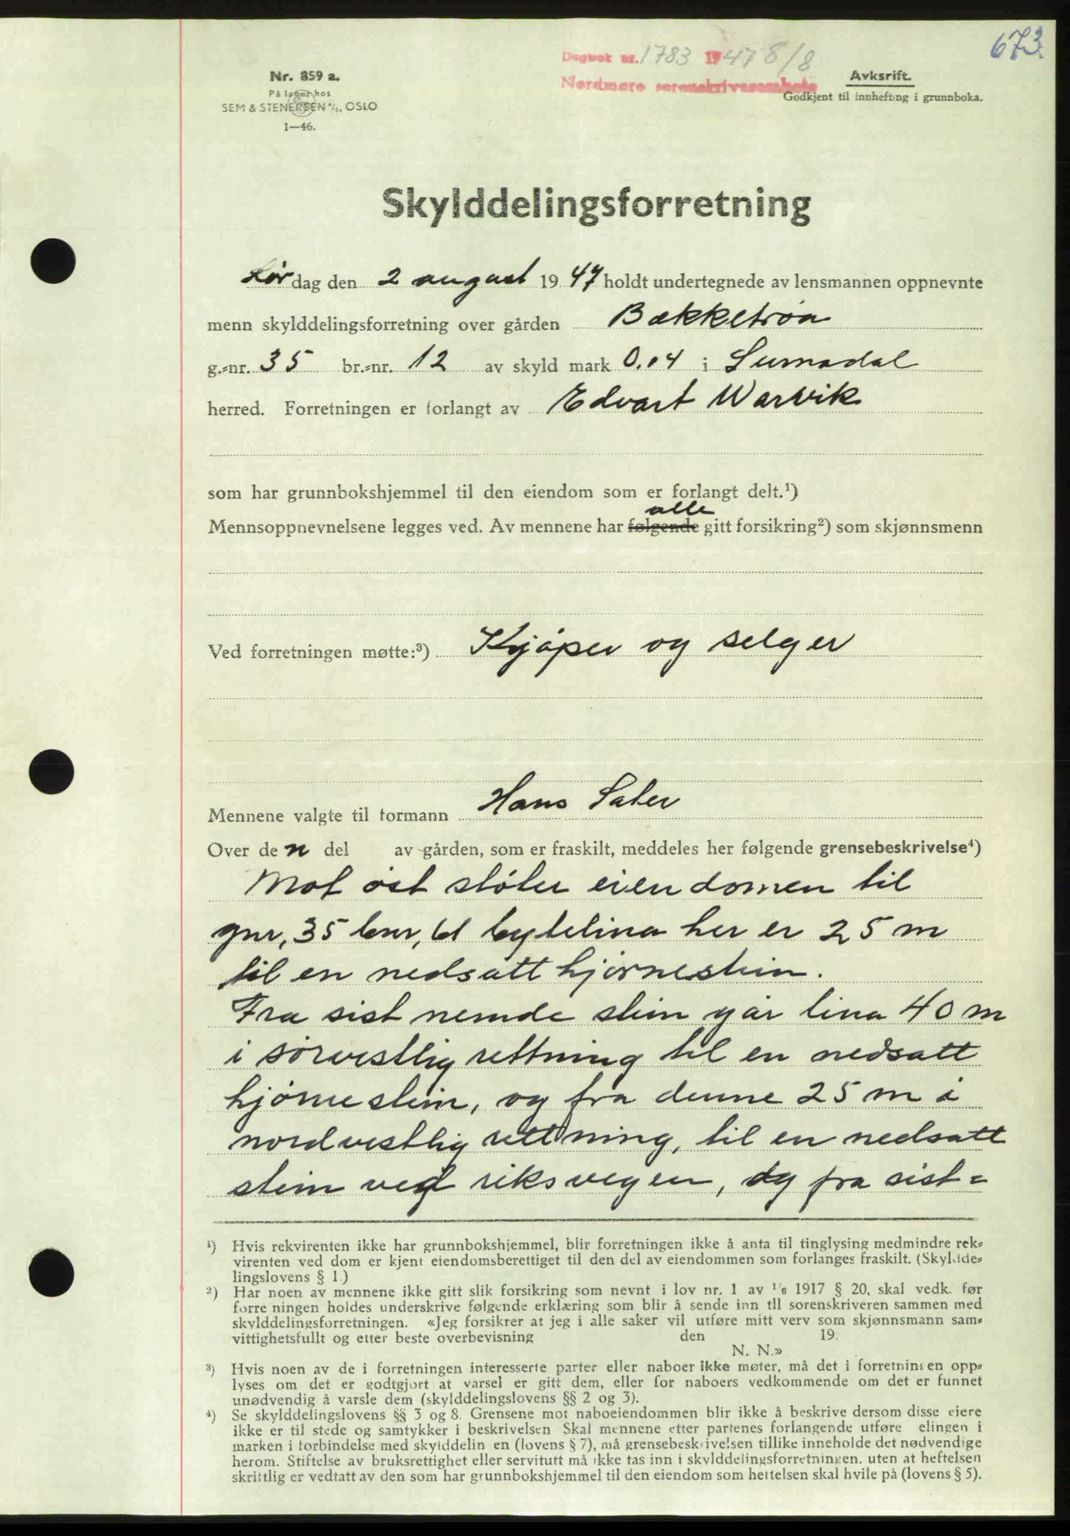 673.
Dagbok nr. 1783 1947 8/8
Nordmøre sorenskriverembete
Nr. 859 a.
På lager hos
SEM & STENERSEN A/S, OSLO
1—46.
Avskrift.
Godkjent til innhefting i grunnboka.
Skylddelingsforretning
Lørdag den 2 august 1947 holdt undertegnede av lensmannen oppnevnte
menn skylddelingsforretning over gården Bækketrøa
g.-nr. 35 br.-nr. 12 av skyld mark 0.04 i Surnadal
herred. Forretningen er forlangt av Edvart Warvik
som har grunnbokshjemmel til den eiendom som er forlangt delt.¹)
alle
Mennsoppnevnelsene legges ved. Av mennene har følgende gitt forsikring²) som skjønnsmenn
Ved forretningen møtte:³) Kjøper og selger
Mennene valgte til formann Hans Sæter
Over den del av gården, som er fraskilt, meddeles her følgende grensebeskrivelse⁴)
Mot øst støter eiendomen til
gnr, 35 bnr, 61 bytelina her er 25 m
til en nedsatt hjørnestein.
Fra sist nemde stein går lina 40 m
i sørvestlig rettning til en nedsatt
hjørnestein, og fra denne 25 m i
nordvestlig rettning, til en nedsatt
stein ved riksvegen, og fra sist=
¹) Hvis rekvirenten ikke har grunnbokshjemmel, blir forretningen ikke å anta til tinglysing medmindre rek-
virenten ved dom er kjent eiendomsberettiget til den del av eiendommen som forlanges fraskilt. (Skyldde-
lingslovens § 1.)
²) Har noen av mennene ikke gitt slik forsikring som nevnt i lov nr. 1 av 1/6 1917 § 20, skal vedk. før
forretningen holdes underskrive følgende erklæring som blir å sende inn til sorenskriveren sammen med
skylddelingsforretningen. «Jeg forsikrer at jeg i alle saker vil utføre mitt verv som skjønnsmann sam-
vittighetsfullt og etter beste overbevisning den 19.
N. N.»
³) Hvis noen av de i forretningen interesserte parter eller naboer ikke møter, må det i forretningen opp-
lyses om det er godtgjort at varsel er gitt dem, eller for naboers vedkommende om det er funnet
unødvendig å varsle dem (skylddelingslovens §§ 2 og 3).
⁴) Se skylddelingslovens §§ 3 og 8. Grensene mot naboeiendommen blir ikke å beskrive dersom disse eiere
ikke er til stede og samtykker i beskrivelsen Skal mennene etter partenes forlangende utføre elingen i
marken i forbindelse med skylddelin en (lovens § 7), må grensebeskrivelsen tillike inneholde det nødvendige
herom. Stiftelse av bruksrettighet eller servitutt må ikke tas inn i skylddelingsforretningen. uten at heftelsen
skriftlig er vedtatt av den som har grunnbokshjemmel til den eiendom som heftelsen skal hvile på (lovens § 5).